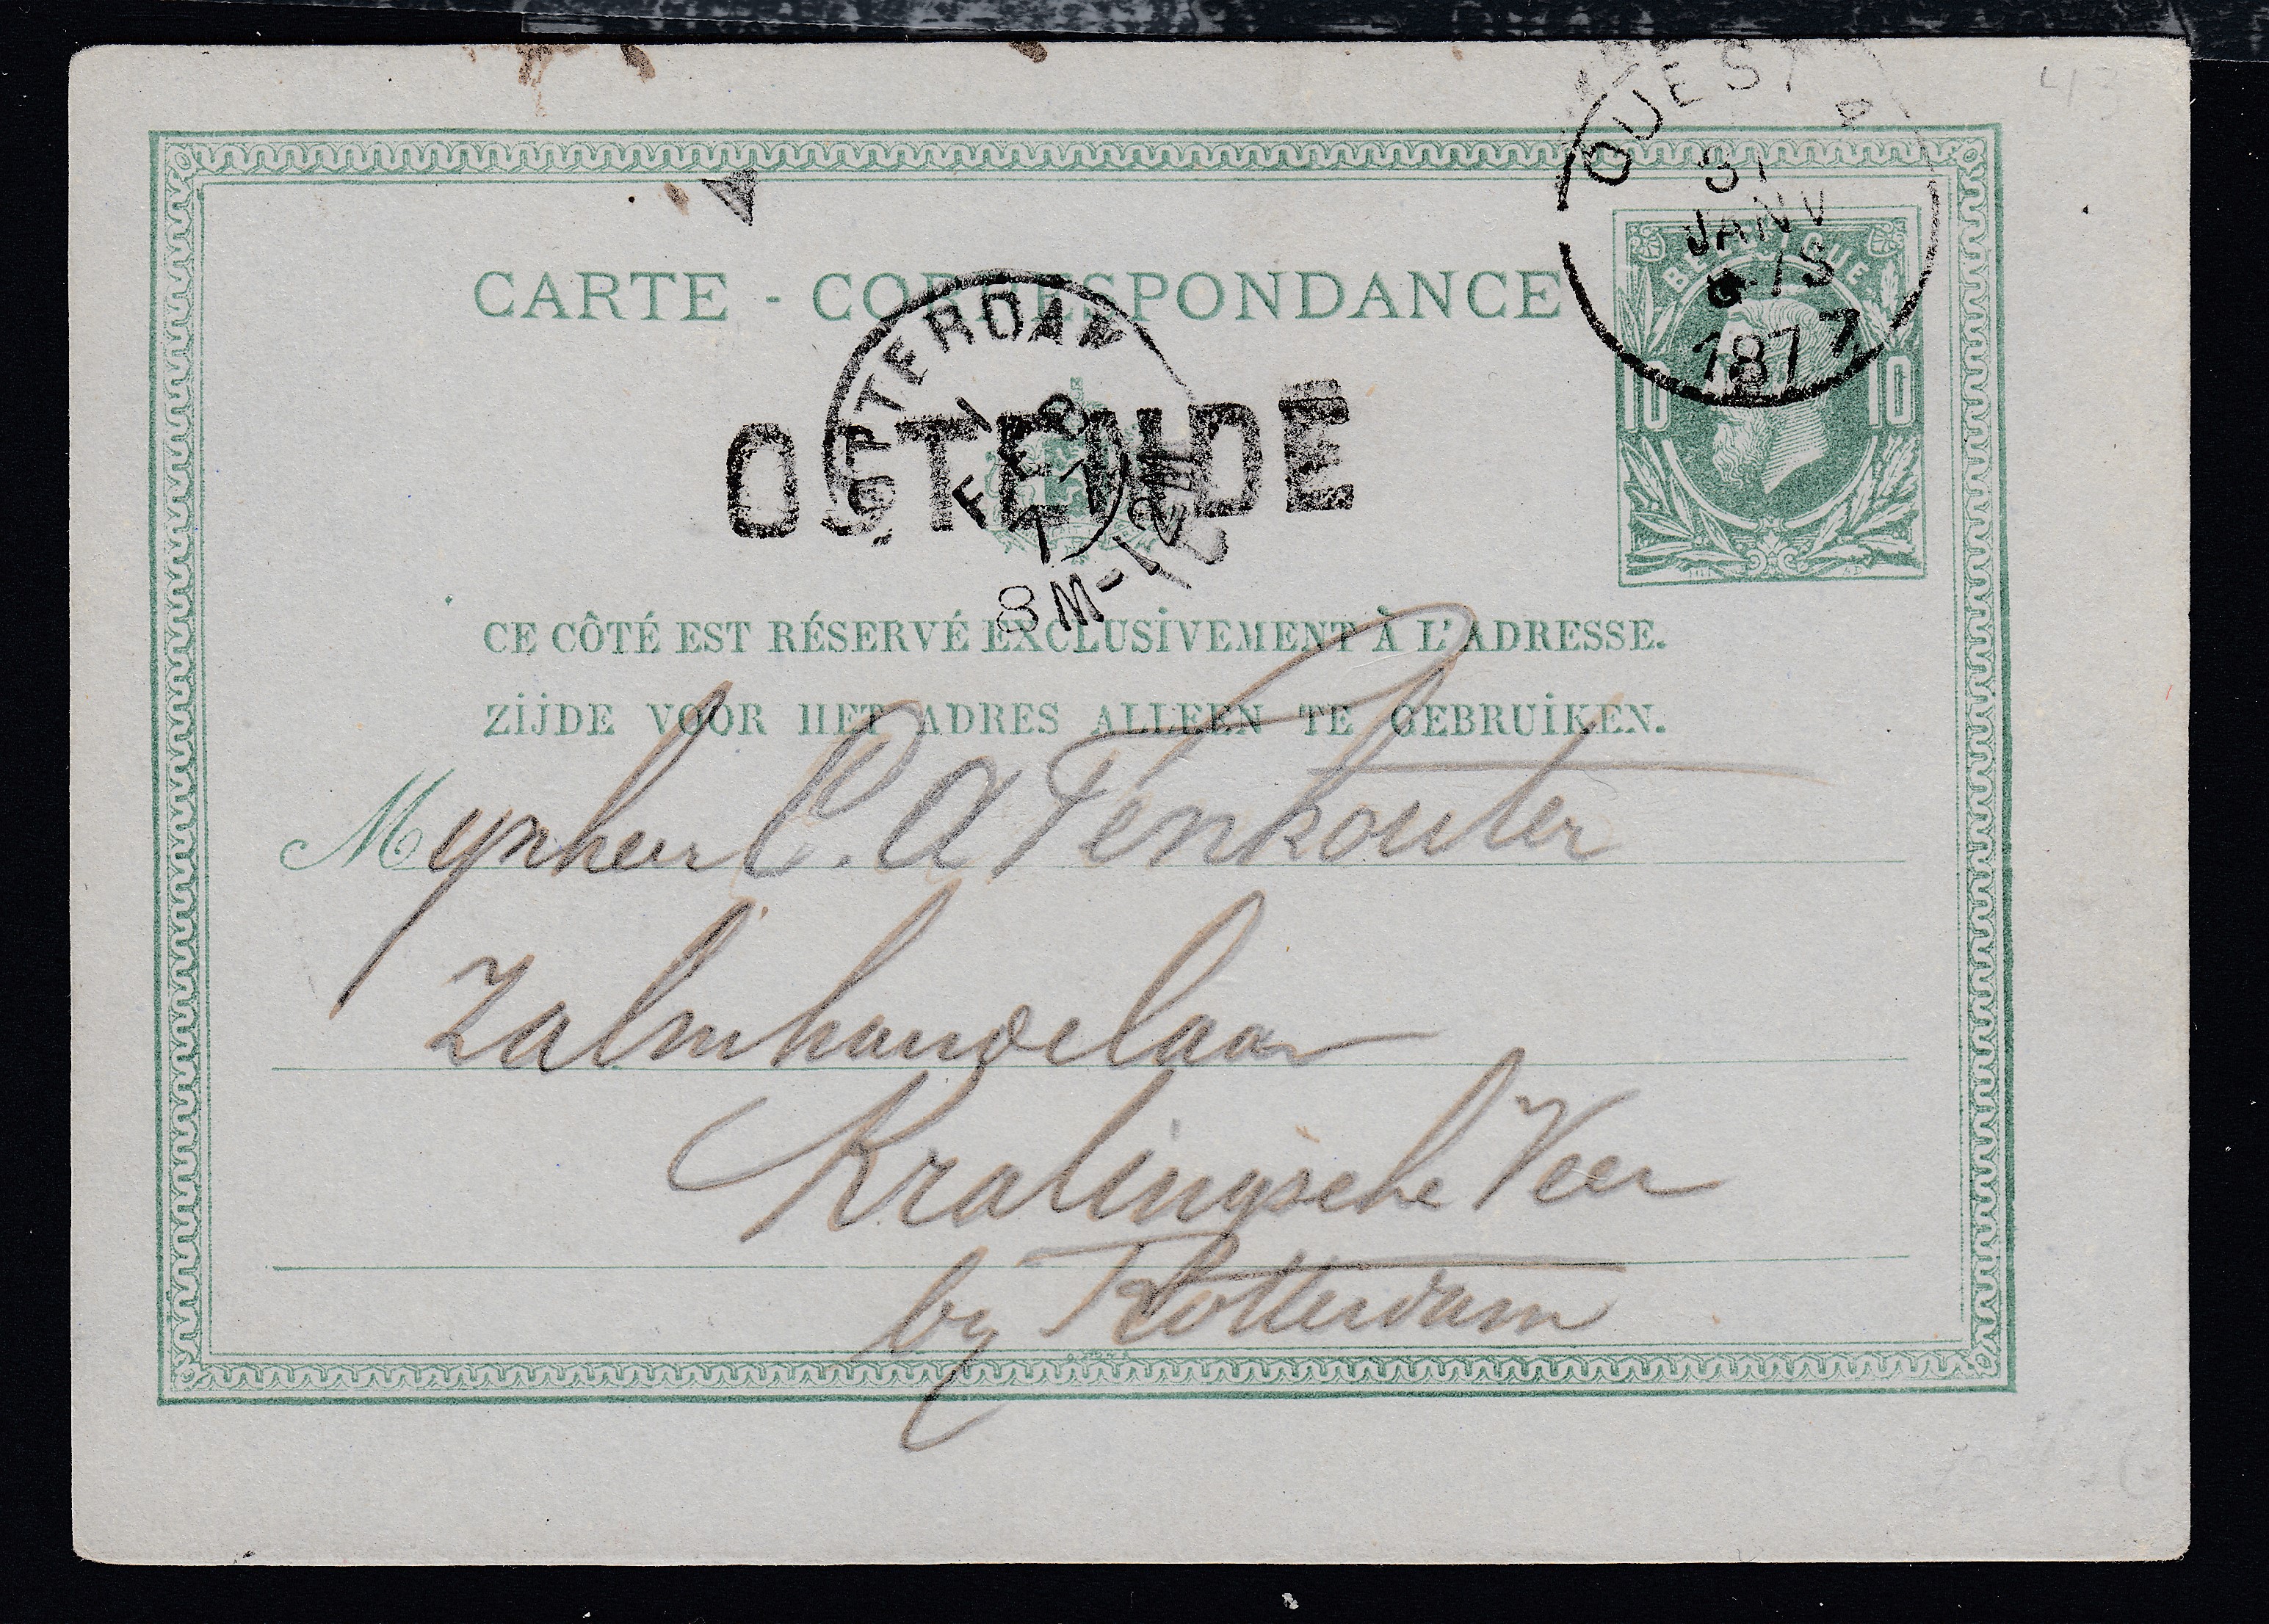 OUEST 4
31
JANV
6-/S
1877
BELGIQUE
10 10
CARTE - CORRESPONDANCE
ROTTERDAM
FEB
77
8M-12M
OSTENDE
CE CÔTÉ EST RÉSERVÉ EXCLUSIVEMENT À L'ADRESSE.
ZIJDE VOOR HET ADRES ALLEEN TE GEBRUIKEN.
Mynheer C. A Fenkouter
Zalmhandelaar
Kralingsche Veer
by Rotterdam